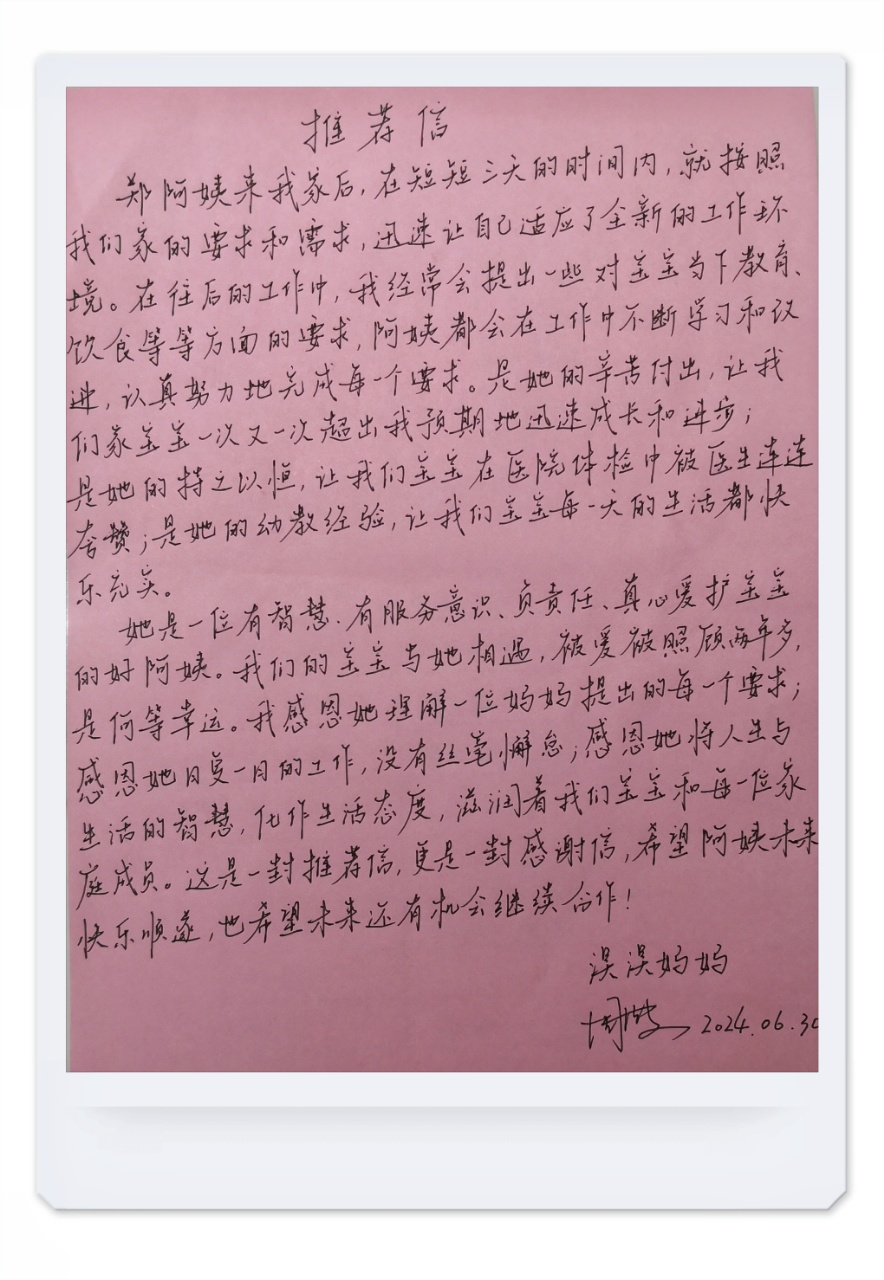 推荐信
郑阿姨来我家后，在短短三天的时间内，就按照
我们家的要求和需求，迅速让自己适应了全新的工作环
境。在往后的工作中，我经常会提出一些对宝宝当下教育、
饮食等等方面的要求，阿姨都会在工作中不断学习和改
进，认真努力地完成每一个要求。是她的辛苦付出，让我
们家宝宝一次又一次超出我预期地迅速成长和进步；
是她的持之以恒，让我们宝宝在医院体检中被医生连连
夸赞；是她的幼教经验，让我们宝宝每一天的生活都快
乐充实。
她是一位有智慧、有服务意识、负责任、真心爱护宝宝
的好阿姨。我们的宝宝与她相遇，被爱被照顾两年多，
是何等幸运。我感恩她理解一位妈妈提出的每一个要求；
感恩她日复一日的工作，没有丝毫懈怠；感恩她将人生与
生活的智慧，化作生活态度，滋润着我们宝宝和每一位家
庭成员。这是一封推荐信，更是一封感谢信，希望阿姨未来
快乐顺遂，也希望未来还有机会继续合作！
淏淏妈妈
2024.06.30